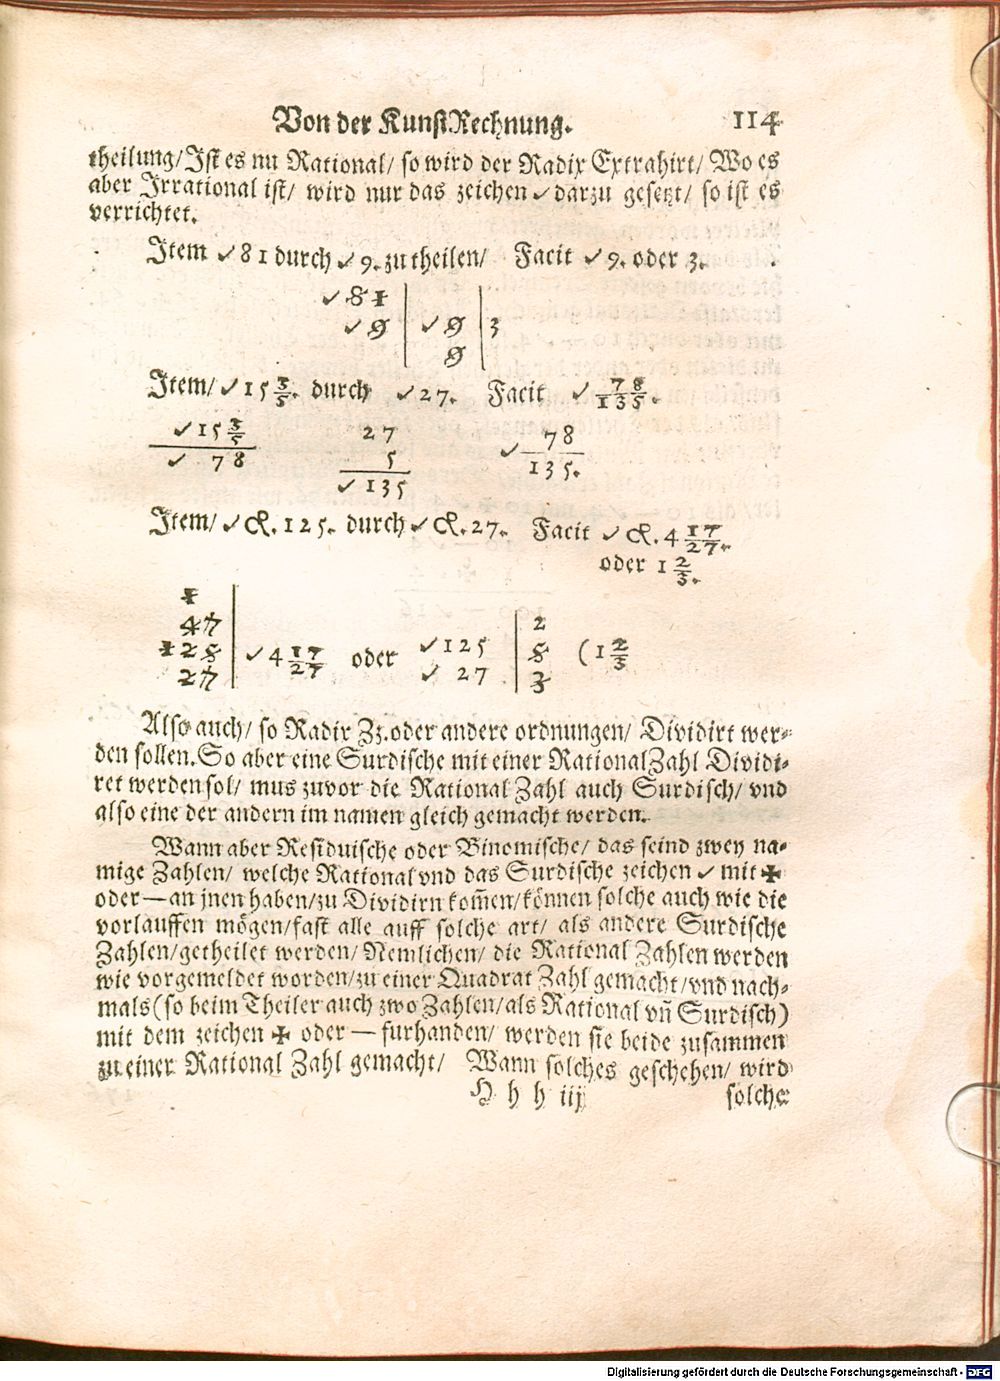 Von der KunstRechnung. 114
theilung/Ist es nu Rational/ so wird der Radix Extrahirt/ Wo es
aber Irrational ist/ wird nur das zeichen √ darzu gesetzt/ so ist es
verrichtet.
Item √81 durch √9. zu theilen/ Facit √9. oder 3.
√81
√9 | √9 | 3
9
Item/ √15 3/5. durch √27. Facit √78/135.
√15 3/5 27 √78/135.
√78 5
√135
Item/ √ . 125. durch √ . 27. Facit √ . 4 17/27.
oder 1 2/3.
1
47 2
128 | √4 17/27 oder √125 | 5 (1 2/3
27 √27 3
Also auch/ so Radix Zz. oder andere ordnungen/ Dividirt wer=
den sollen. So aber eine Surdische mit einer Rational Zahl Dividi=
ret werden sol/ mus zuvor die Rational Zahl auch Surdisch/ vnd
also eine der andern im namen gleich gemacht werden.
Wann aber Residuische oder Binomische/ das seind zwey na=
mige Zahlen/ welche Rational vnd das Surdische zeichen √ mit +
oder — an jnen haben/zu Dividirn kom̃en/können solche auch wie die
vorlauffen mögen/fast alle auff solche art/ als andere Surdische
Zahlen/getheilet werden/ Nemlichen/ die Rational Zahlen werden
wie vorgemeldet worden/zu einer Quadrat Zahl gemacht/vnd nach=
mals (so beim Theiler auch zwo Zahlen/als Rational vñ Surdisch)
mit dem zeichen + oder — furhanden/ werden sie beide zusammen
zu einer Rational Zahl gemacht/ Wann solches geschehen/ wird
H h h iij solche
Digitalisierung gefördert durch die Deutsche Forschungsgemeinschaft - DFG